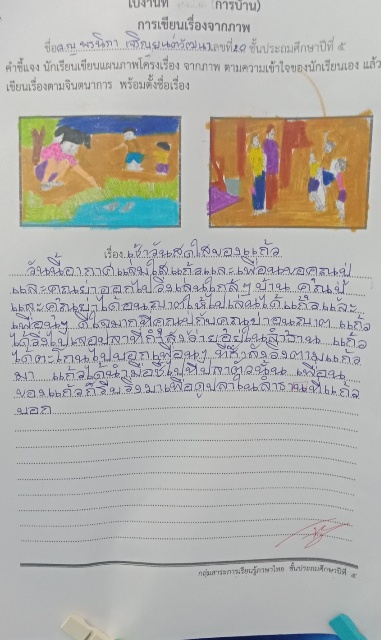 ใบงานที่ (การบ้าน)
การเขียนเรื่องจากภาพ
ชื่อ ด.ญ. เลขที่ 20 ชั้นประถมศึกษาปีที่ ๕
คำชี้แจง นักเรียนเขียนแผนภาพโครงเรื่อง จากภาพ ตามความเข้าใจของนักเรียนเอง แล้ว
เขียนเรื่องตามจินตนาการ พร้อมตั้งชื่อเรื่อง
เรื่อง เช้าวันสดใสของแก้ว
วันนี้อากาศแจ่มใสแก้วและเพื่อนขอคุณปู่
และคุณย่าออกไปวิ่งเล่นใกล้ๆบ้าน คุณปู่
และคุณย่าได้อนุญาตให้ไปเล่นได้แก้วและ
เพื่อนๆ ดีใจมากที่คุณปู่กับคุณย่าอนุญาต แก้ว
ได้วิ่งไปเจอปลาที่กำลังว่ายอยู่ในลำธาร แก้ว
ได้ตะโกนไปบอกเพื่อนๆ ที่กำลังวิ่งตามแก้ว
มา แก้วได้นำมือชี้ไปที่ปลาตัวนั้น เพื่อน
ของแก้วก็รีบวิ่งมาเพื่อดูปลาในลำธารที่แก้ว
บอก
กลุ่มสาระการเรียนรู้ภาษาไทย ชั้นประถมศึกษาปีที่ ๕